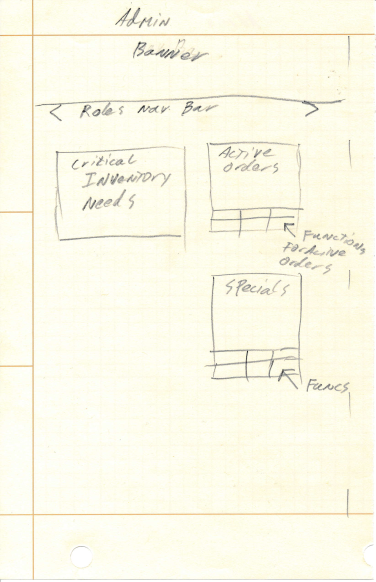 Admin
Banner
Roles Nav Bar
Critical
Inventory
Needs
Active
Orders
Functions
For Active
Orders
Specials
Funcs